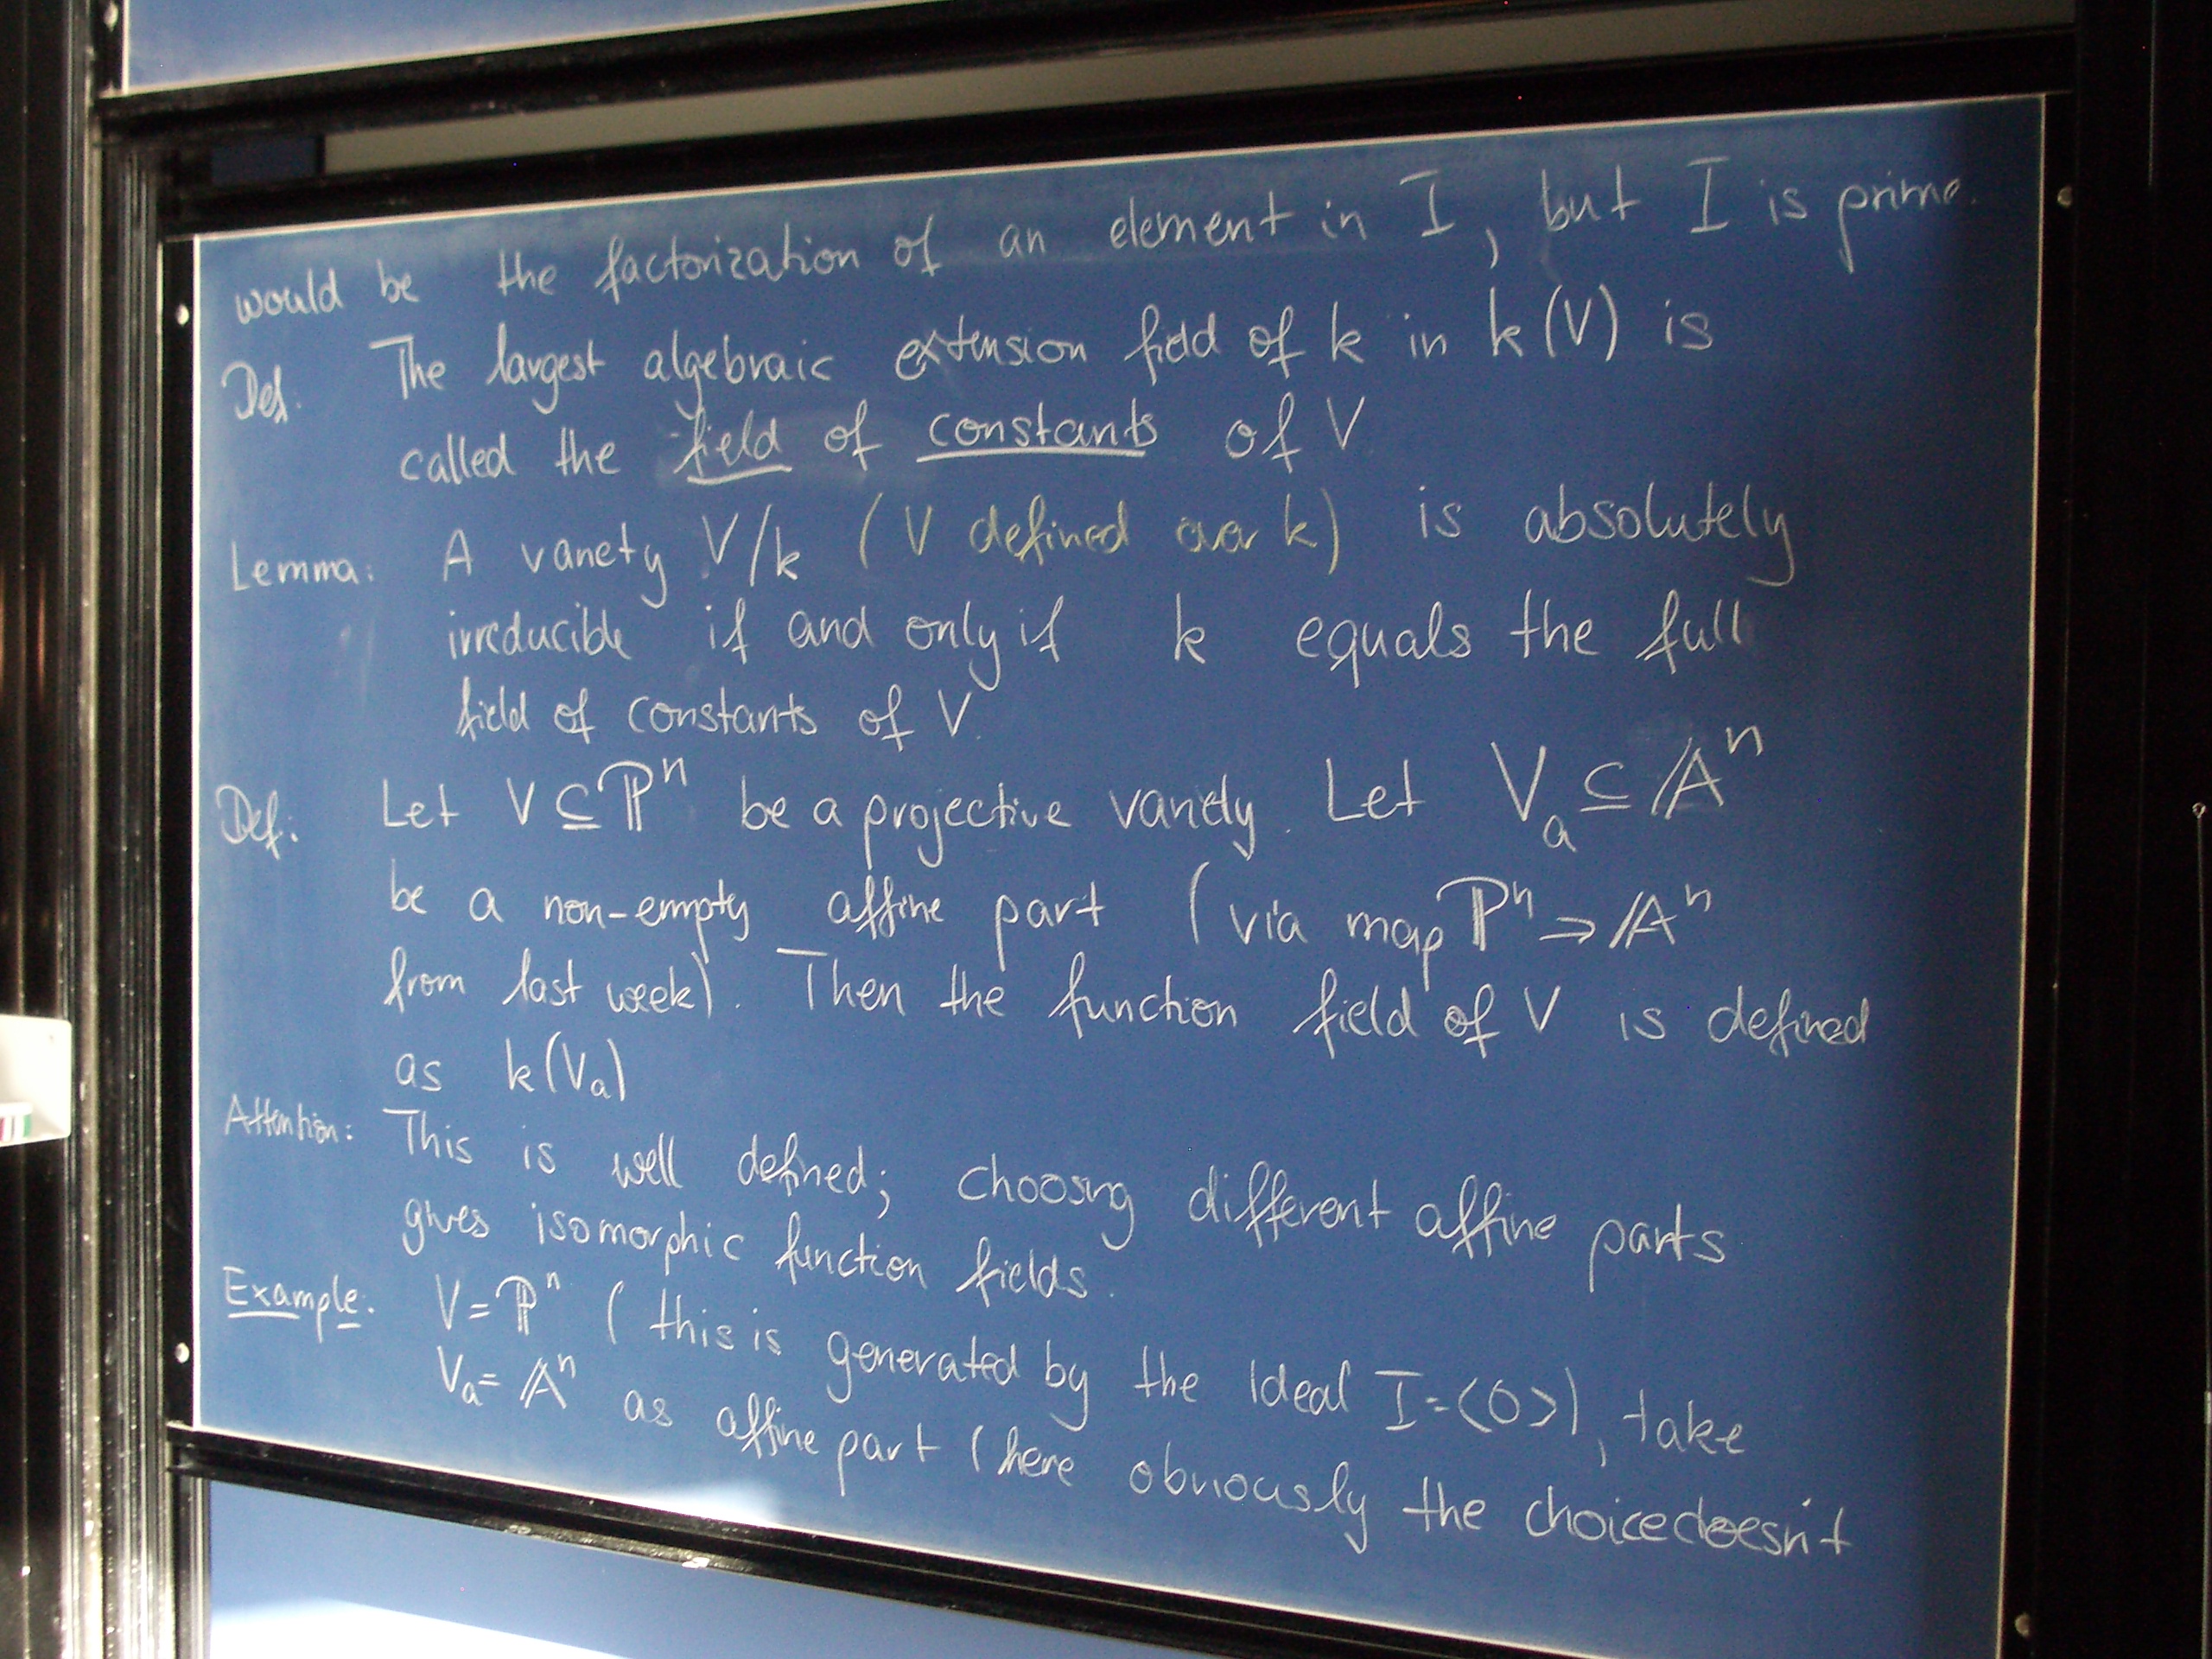 would be the factorization of an element in I, but I is prime.
Def. The largest algebraic extension field of k in k(V) is
called the field of constants of V
Lemma: A variety V/k (V defined over k) is absolutely
irreducible if and only if k equals the full
field of constants of V.
Def: Let V ⊆ ℙⁿ be a projective variety. Let Vₐ ⊆ 𝔸ⁿ
be a non-empty affine part (via map ℙⁿ → 𝔸ⁿ
from last week). Then the function field of V is defined
as k(Vₐ)
Attention: This is well defined; choosing different affine parts
gives isomorphic function fields.
Example: V = ℙⁿ (this is generated by the ideal I = <0>), take
Vₐ = 𝔸ⁿ as affine part (here obviously the choice doesn't